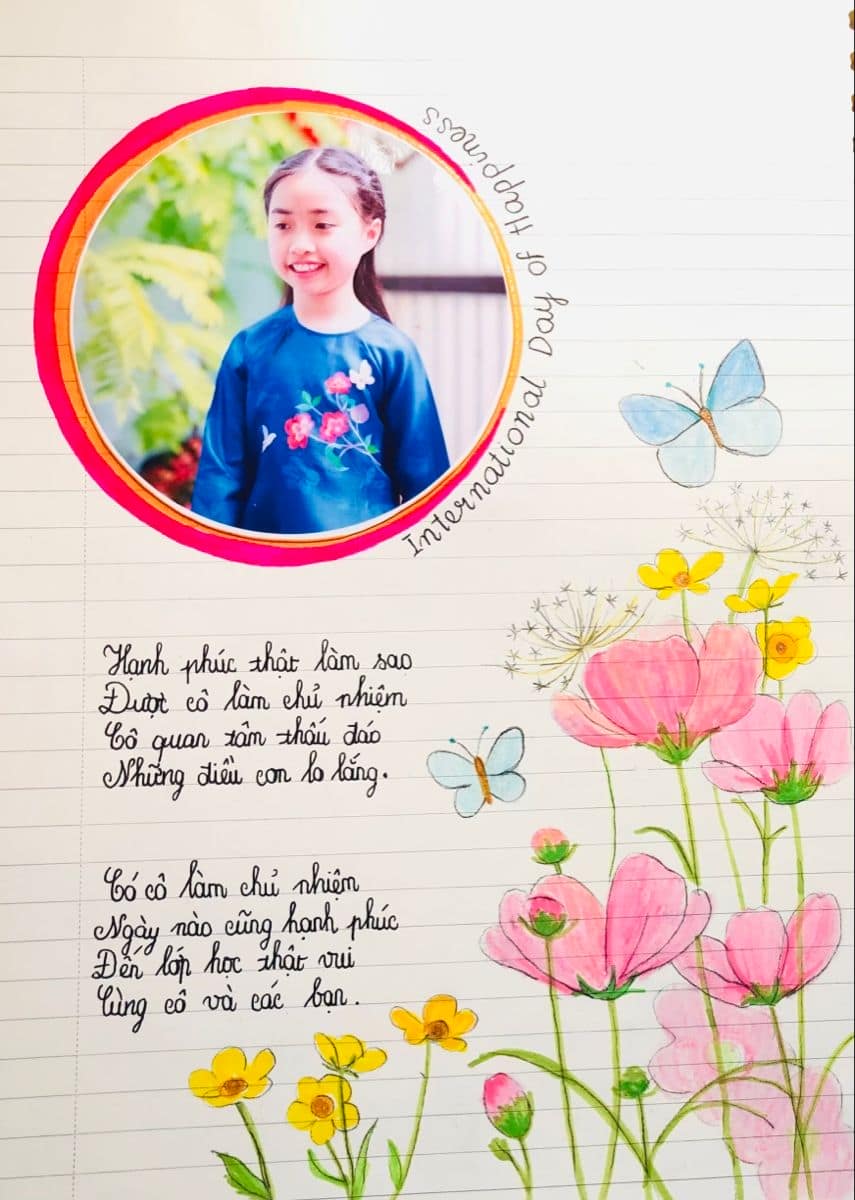 International Day of Happiness
Hạnh phúc thật làm sao
Được cô làm chủ nhiệm
Cô quan tâm thấu đáo
Những điều con lo lắng.
Có cô làm chủ nhiệm
Ngày nào cũng hạnh phúc
Đến lớp học thật vui
Cùng cô và các bạn.